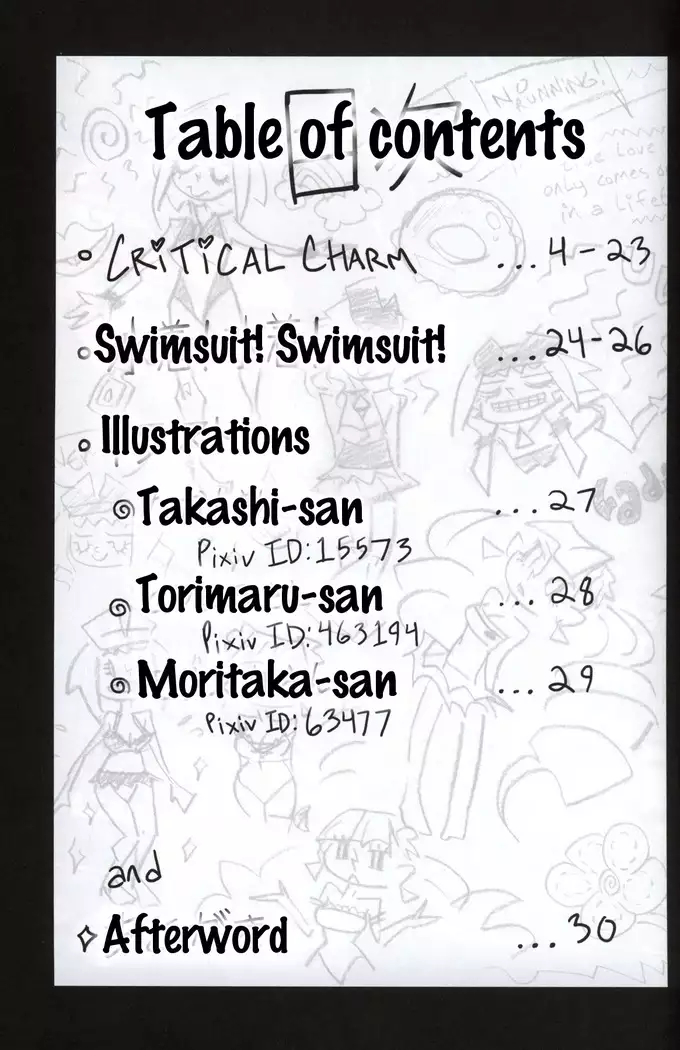 NO RUNNING!
Table of contents
目次
true love
only comes
in a lifet
CRITICAL CHARM ...4-23
Swimsuit! Swimsuit! ...24-26
Illustrations
Takashi-san ...27
Pixiv ID:15573
Torimaru-san ...28
Pixiv ID:463194
Moritaka-san ...29
Pixiv ID:63477
and
Afterword ...30